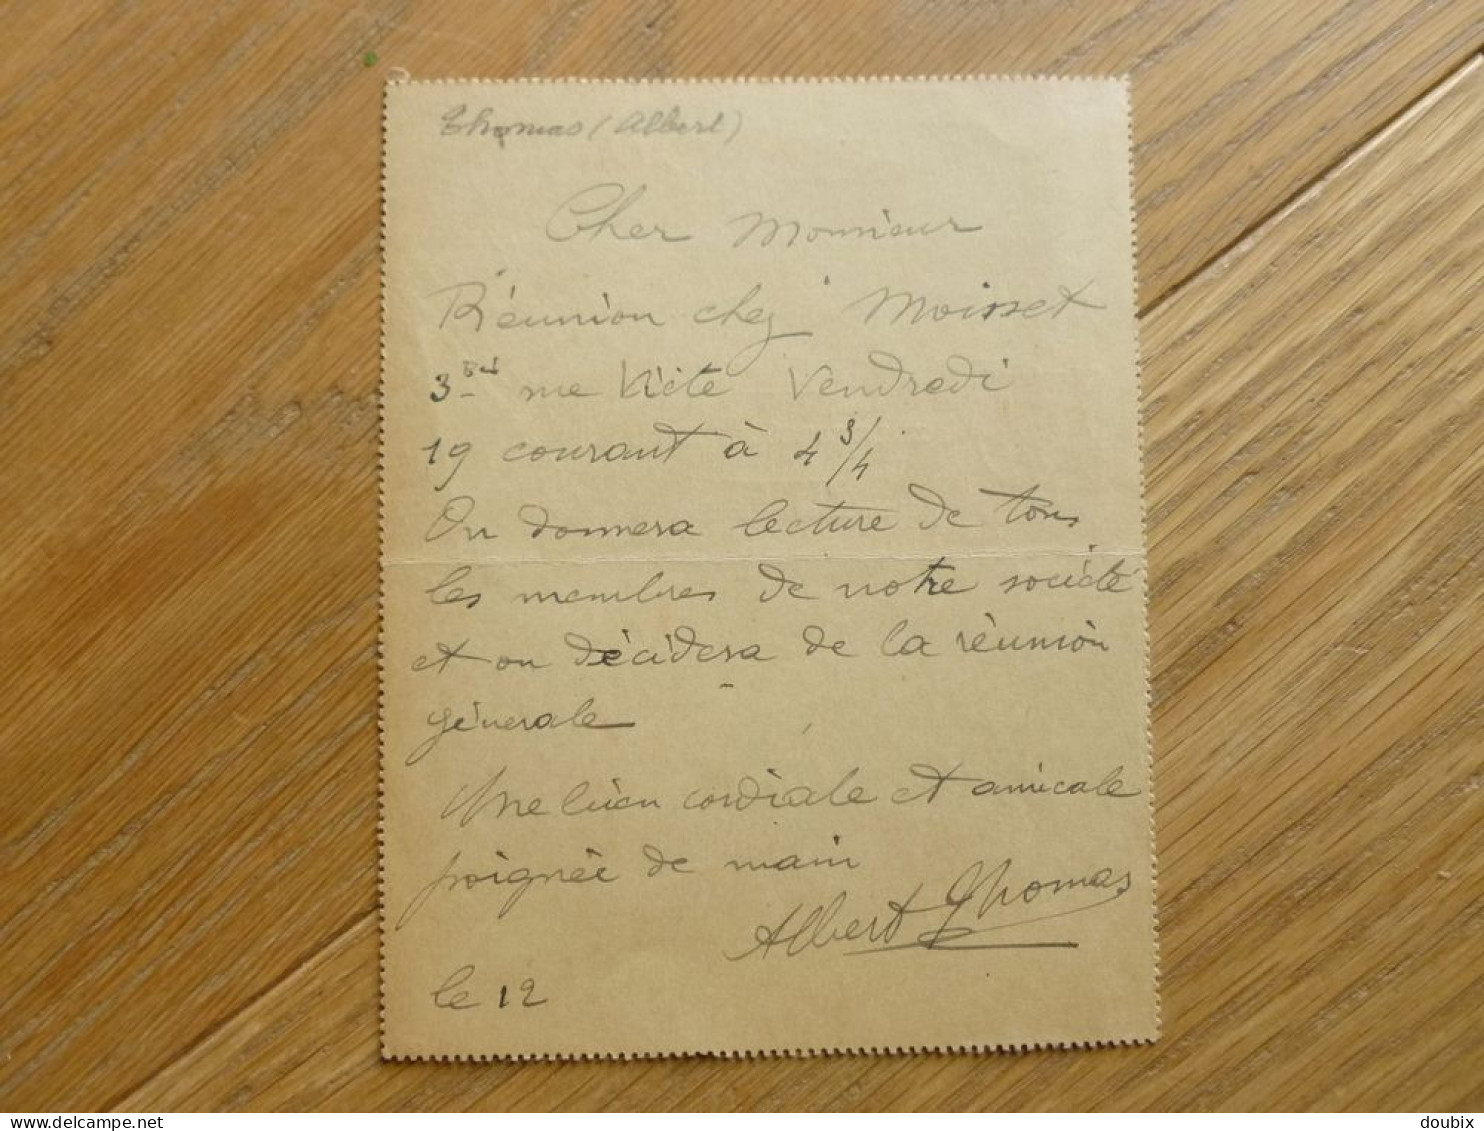 Thomas (Albert)
Cher Monsieur
Réunion chez Moisset
3 rue Viète Vendredi
19 courant à 4 3/4
On donnera lecture de tous
les membres de notre société
et on décidera de la réunion
générale
Une bien cordiale et amicale
poignée de main
Albert Thomas
le 12
delcampe.net
doubix